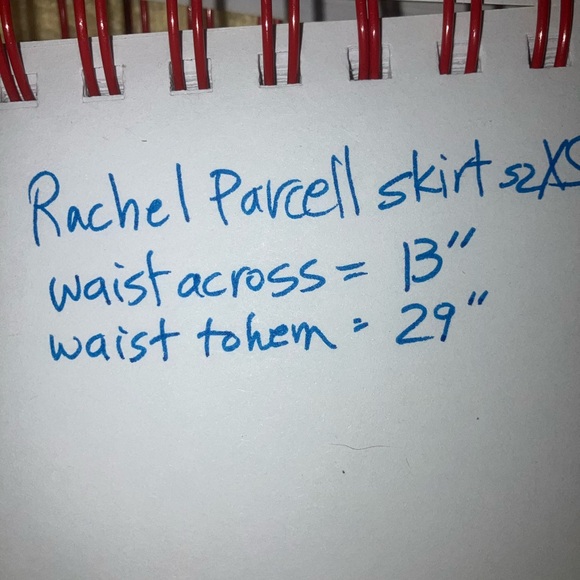 Rachel Parcell skirt sz XS
waist across = 13"
waist to hem = 29"